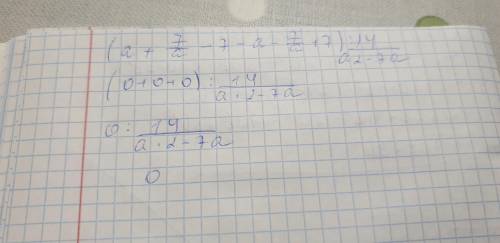 (a + 7/a - 7 - a - 7/a + 7) : 14/(a2 - 7a)
(0+0+0) : 14/(a · 2 - 7a)
0 : 14/(a · 2 - 7a)
0